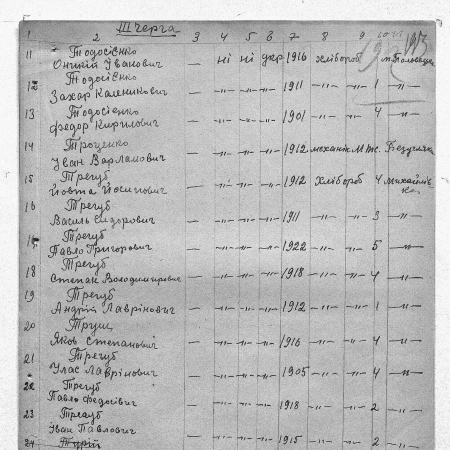 III черга
1 2 3 4 5 6 7 8 9 10 11
11 Тодосієнко
Оникій Іванович — ні ні укр 1916 хлібороб
12 Тодосієнко
Захар Каленикович — -"- -"- -"- 1911 -"- -"- 1 -"-
13 Тодосієнко
Федор Кирилович — -"- -"- -"- 1901 -"- -"- 4 -"-
14 Троценко
Іван Варламович — -"- -"- -"- 1912 механік
15 Трегуб
Йовта Йосипович — -"- -"- -"- 1912 хлібороб -"- 4 Михайлів
ка
16 Трегуб
Василь Сидорович — -"- -"- -"- 1911 -"- -"- 3 -"-
Трегуб
Павло Григорович — -"- -"- -"- 1922 -"- -"- 5 -"-
18 Трегуб
Степан Володимирович — -"- -"- -"- 1918 -"- -"- 4 -"-
19 Трегуб
Андрій Лаврінович — -"- -"- -"- 1912 -"- -"- 1 -"-
20 Труш
Яков Степанович — -"- -"- -"- 1916 -"- -"- 4 -"-
21 Трегуб
Улас Лаврінович — -"- -"- -"- 1905 -"- -"- 4 -"-
22 Трегуб
Павло Федосівич — -"- -"- -"- 1918 -"- -"- 2 -"-
23 Трегуб
Іван Павлович — -"- -"- -"- 1915 -"- -"- 2 -"-
24